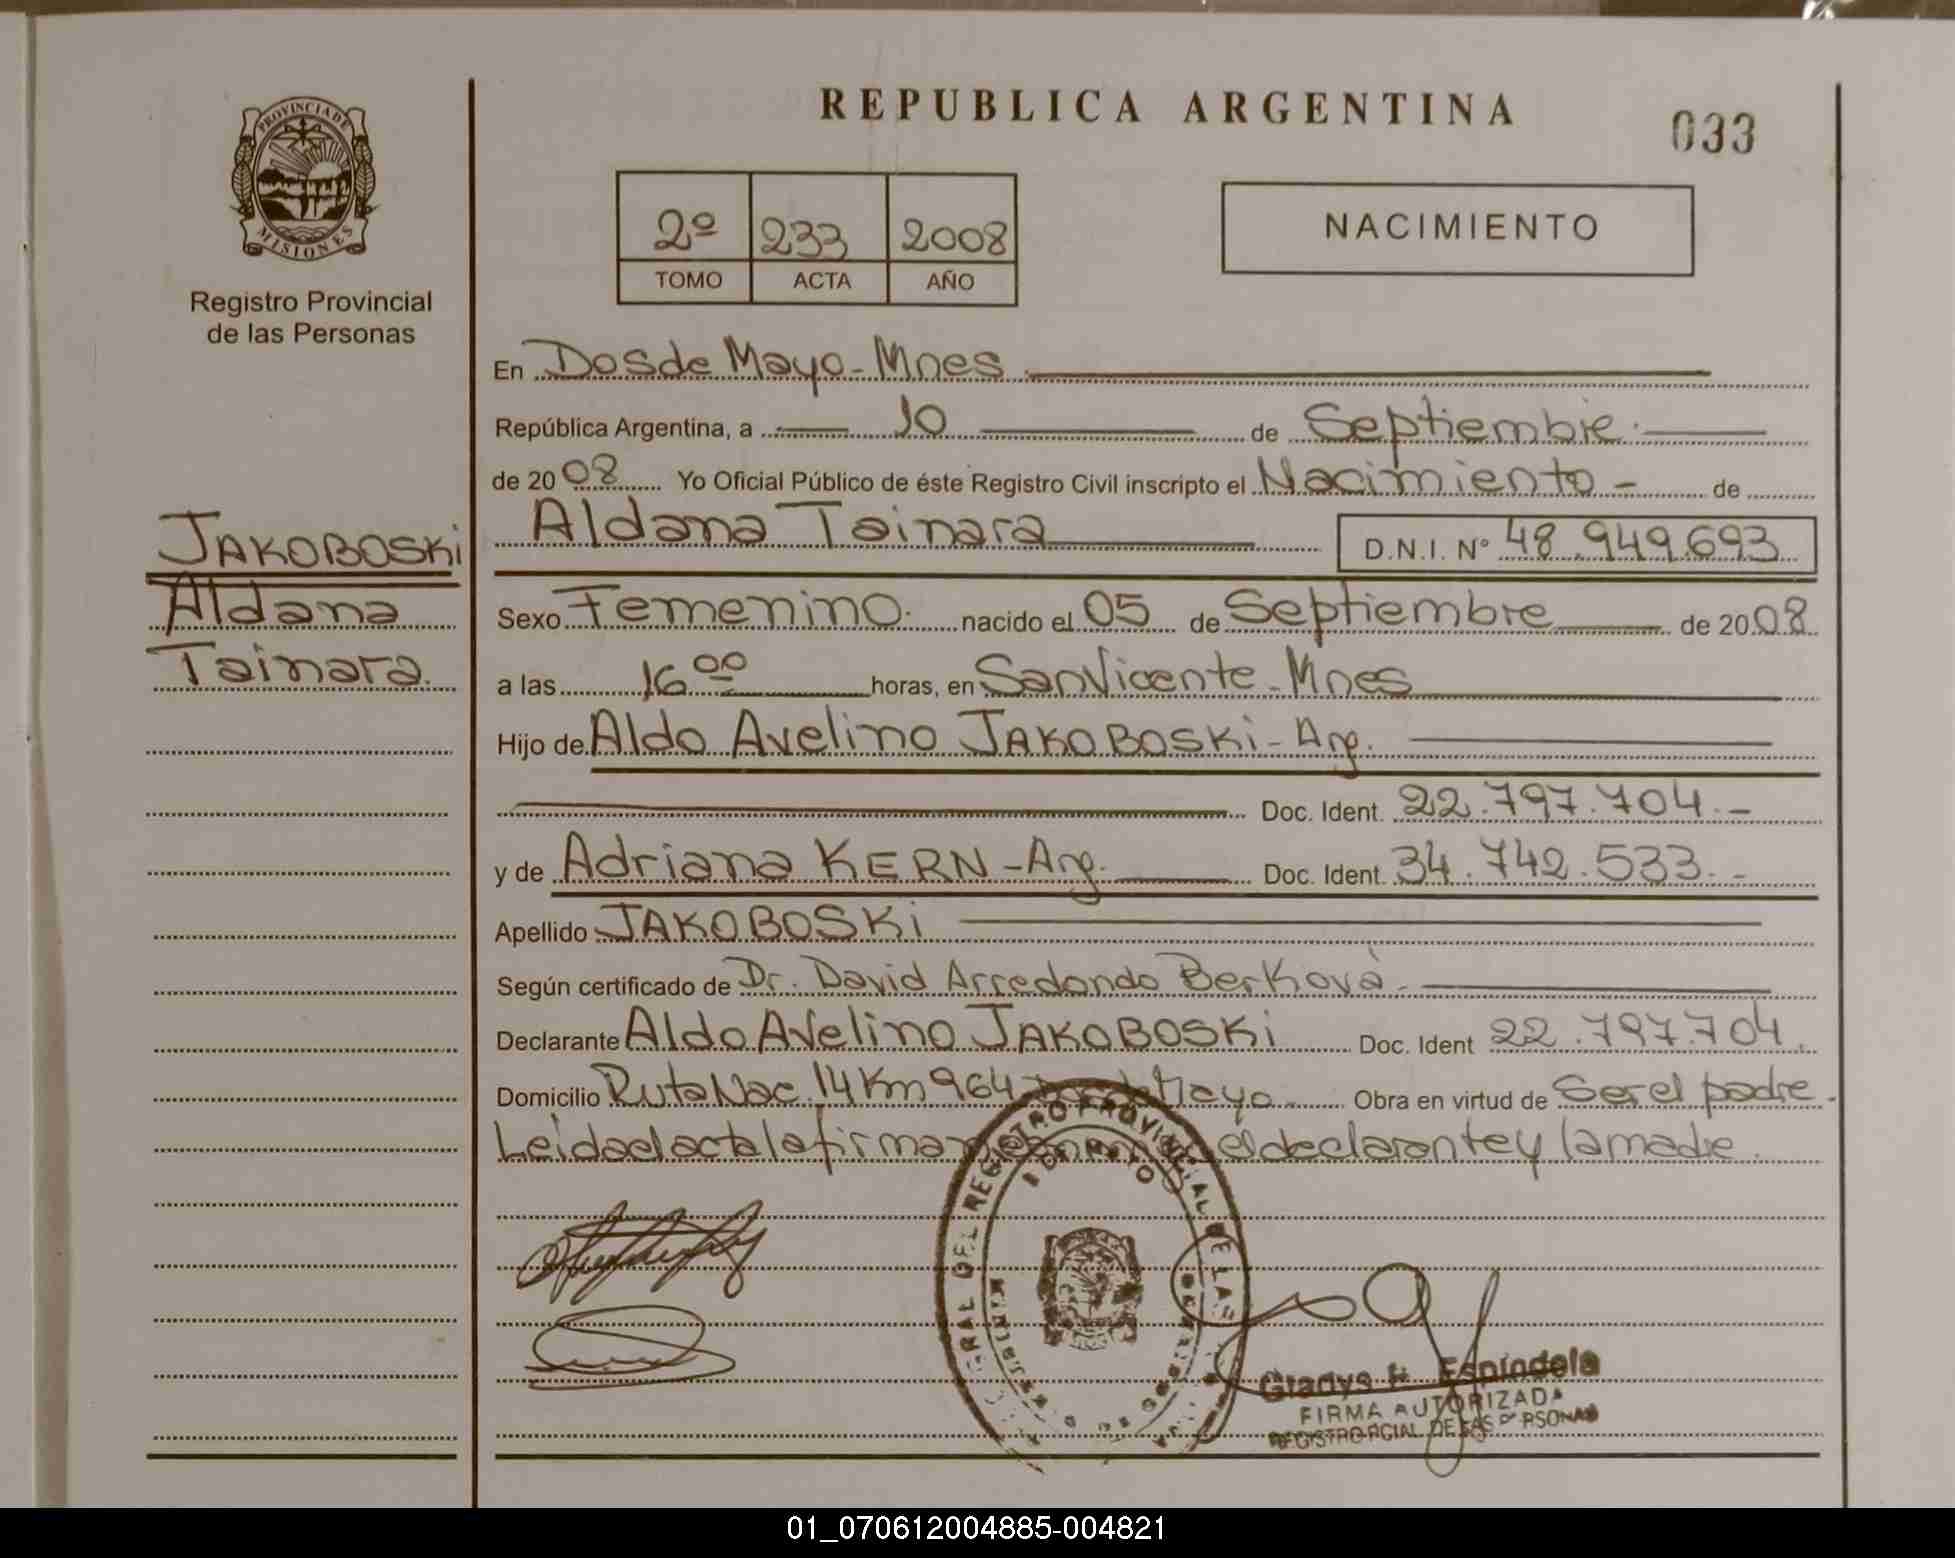 REPUBLICA ARGENTINA
033
PROVINCIA DE
MISIONES
Registro Provincial
de las Personas
2º 233 2008
TOMO ACTA AÑO
NACIMIENTO
En Dos de Mayo - Mnes
República Argentina, a 10 de Septiembre
de 2008 Yo Oficial Público de éste Registro Civil inscripto el Nacimiento - de
JAKOBOSKi
Aldana
Tainara.
Aldana Tainara D.N.I. Nº 48.949.693
Sexo Femenino. nacido el 05 de Septiembre de 2008
a las 16 00 horas, en San Vicente - Mnes
Hijo de Aldo Avelino JAKOBOSKi - Arg.
Doc. Ident. 22.797.704.-
y de Adriana KERN - Arg. Doc. Ident. 34.742.533.-
Apellido JAKOBOSKi
Según certificado de Dr. David Arredondo Berková.
Declarante Aldo Avelino JAKOBOSKi Doc. Ident 22.797.704.
Domicilio Ruta Nac. 14 Km 964 Mayo. Obra en virtud de Ser el padre.
Leida el acta la firman el declarante y la madre.
REGISTRO PROVINCIAL DE LAS
Gladys Espindola
FIRMA AUTORIZADA
REGISTRO PCIAL DE LAS PERSONAS
01_070612004885-004821